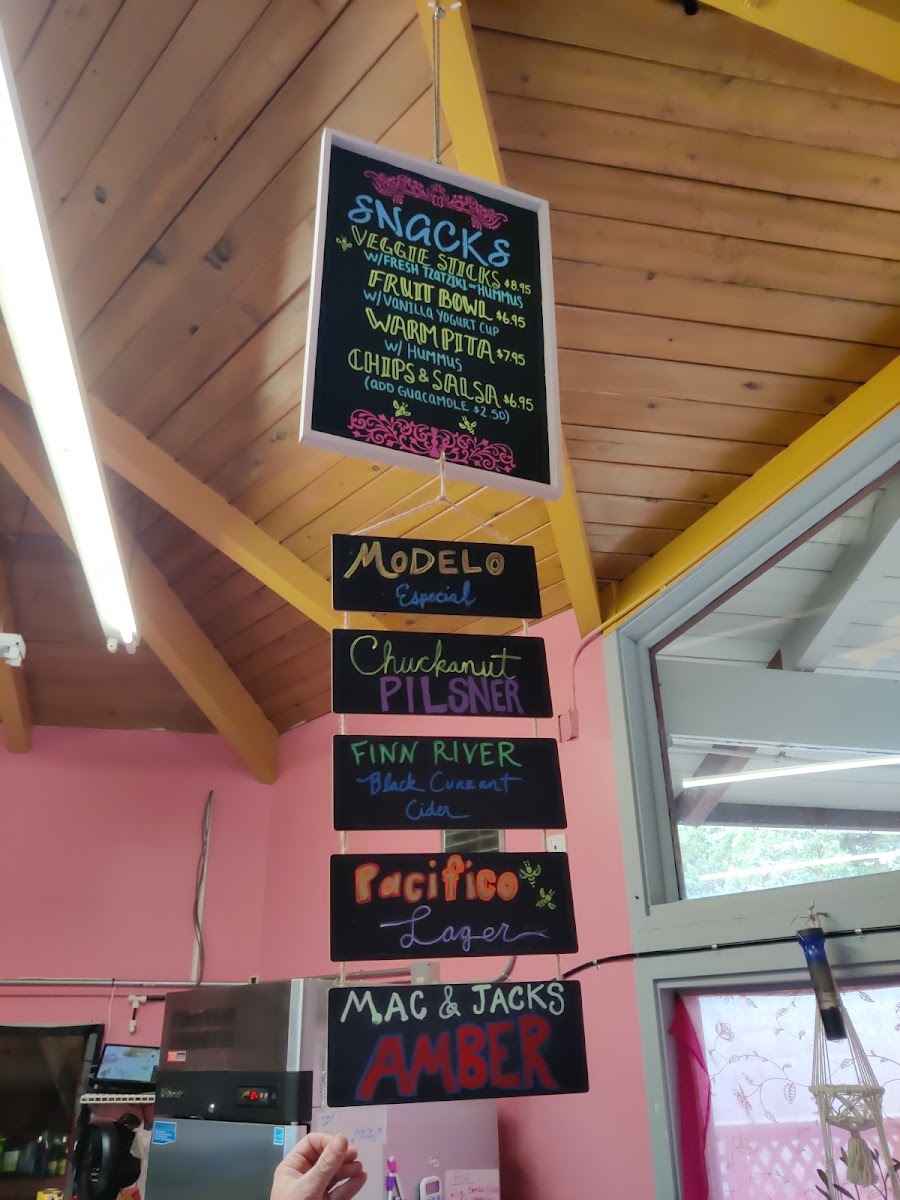 SNACKS
VEGGIE STICKS $8.95
W/FRESH TZATZIKI - HUMMUS
FRUIT BOWL $6.95
W/ VANILLA YOGURT CUP
WARM PITA $7.95
W/ HUMMUS
CHIPS & SALSA $6.95
(ADD GUACAMOLE $2.50)
MODELO
Especial
Chuckanut
PILSNER
FINN RIVER
Black Currant
Cider
Pacifico
Lager
MAC & JACKS
AMBER